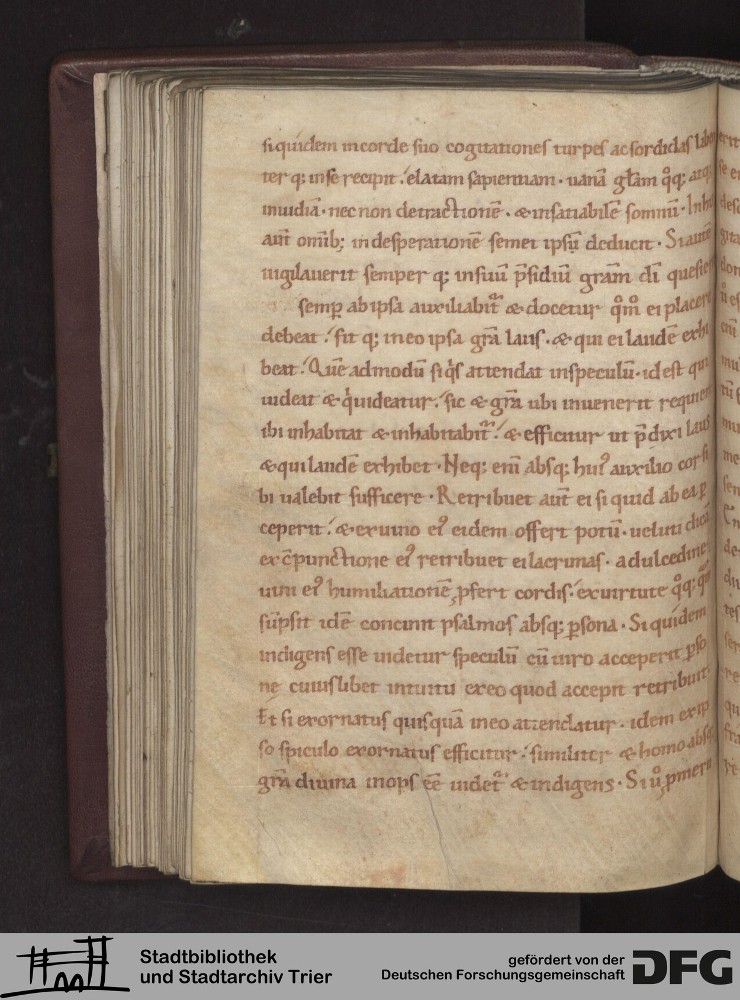 siquidem incorde suo cogitationes turpes ac sordidas laben
ter q; inse recipit. elatam sapientiam. uanã gl̃am q̊q; atq;
inuidiã. nec non detractionẽ. & insatiabilẽ somnũ. Inhis
aũt omĩb; indesperationẽ semet ipsũ deducit. Si autẽ
uigilauerit semper q; insuũ p̃sidiũ gram̃ dĩ quesier
semp̱ ab ipsa auxiliabit᷑ & docetur q̊m̊ ei placere
debeat. fit q; ineo ipsa gr̃a laus. & qui ei laudẽ exhi
beat. Quẽ admodũ siq̇s attendat inspeculũ. id est qui
uideat & q̇uideatur. sic & gr̃a ubi inuenerit requiem
ibi inhabitat & inhabitabit᷑. & efficitur ut p̃dixi laus
& qui laudẽ exhibet. Neq; enĩ absq; hui᷒ auxilio cor si
bi ualebit sufficere. Retribuet aũt ei si quid ab ea p̱
ceperit. & exuino ei᷒ eidem offert potũ. ueluti dicã
exc̃punctione ei᷒ retribuet ei lacrimas. adulcedine
uini ei᷒ humiliationẽ ꝓfert cordis. exuirtute q̊q; quã
sũpsit idẽ concinit psalmos absq; p̱sona. Siquidem
indigens esse uidetur speculũ cũ uiro acceperit p̱so
nę cuiuslibet intuitu ex eo quod accepit retribuit.
Et si exornatus quisquã ineo attendatur. idem ex ip
so spiculo exornatus efficitur. similiter & homo absq;
gr̃a diuina inops eẽ uidet᷑ & indigens. Si ů ꝓmeru
Stadtbibliothek
und Stadtarchiv Trier
gefördert von der
Deutschen Forschungsgemeinschaft
DFG